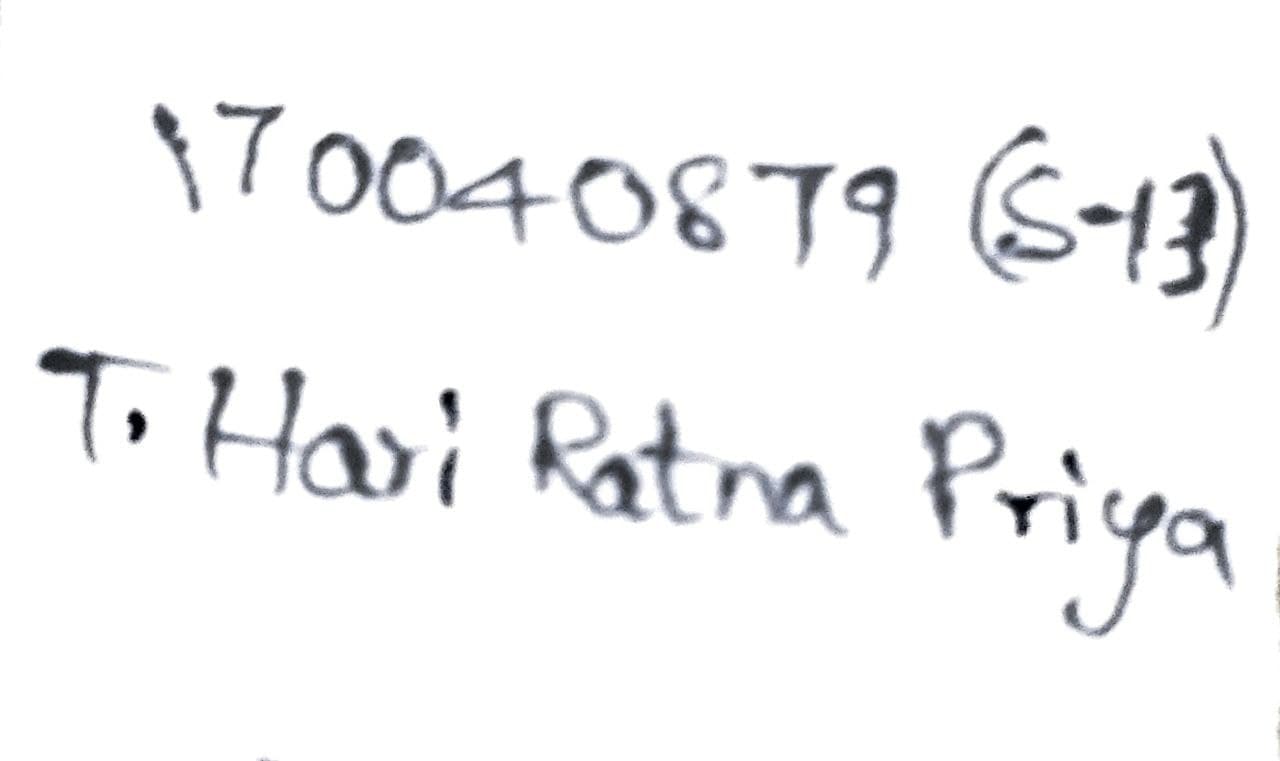 170040879 (S-13)
T. Hari Ratna Priya